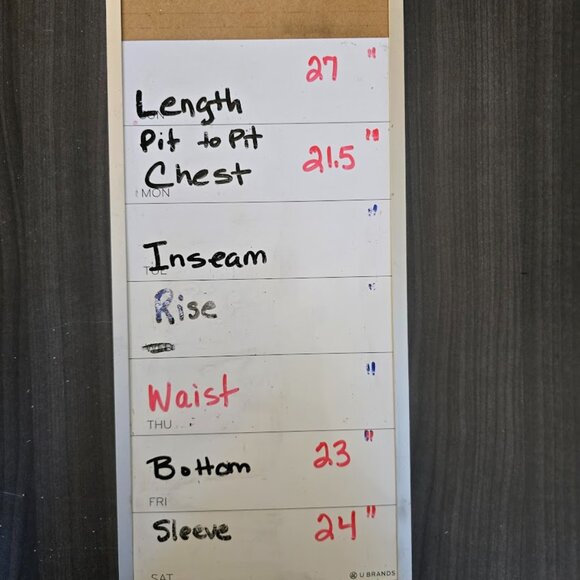 27 "
Length
Pit to Pit
21.5 "
Chest
MON
"
Inseam
"
Rise
"
Waist
THU
23 "
Bottom
FRI
24 "
Sleeve
SAT
U BRANDS